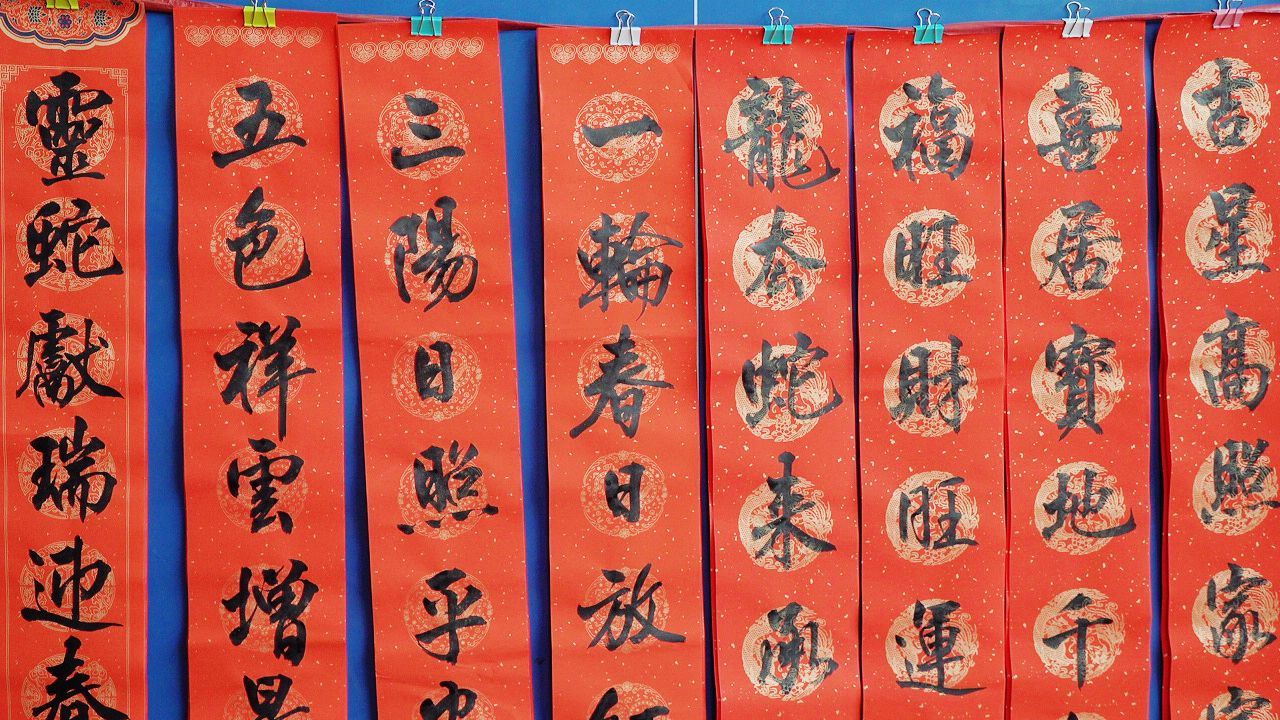 吉星高照家
喜居寶地千
福旺財旺運
龍去蛇来承
一輪春日放
三陽日照平
五色祥雲增
靈蛇獻瑞迎春